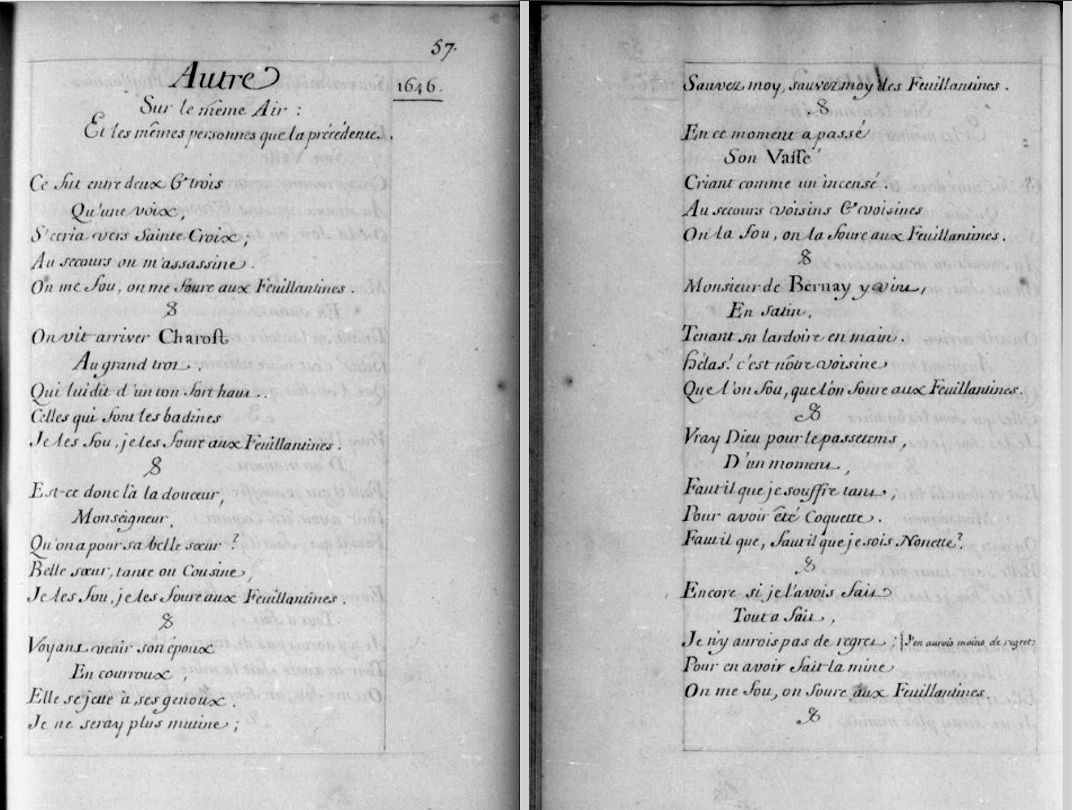 57.
Autre
1646.
Sur le même Air :
Et les mêmes personnes que la précédente.
Ce fut entre deux & trois
Qu'une voix,
S'écria vers Sainte Croix ;
Au secours on m'assassine.
On me fou, on me foure aux Feuillantines.
On vit arriver Charost
Au grand trot.
Qui lui dit d'un ton fort haut.
Celles qui font les badines
Je les fou, je les foure aux Feuillantines.
Est-ce donc là la douceur,
Monseigneur,
Qu'on a pour sa belle sœur ?
Belle sœur, tante ou Cousine,
Je les fou, je les foure aux Feuillantines.
Voyant venir son époux
En courroux,
Elle se jette à ses genoux.
Je ne seray plus mutine ;
Sauvez moy, sauvez moy des Feuillantines.
En ce moment a passé
Son Vassé
Criant comme un incensé.
Au secours voisins & voisines
On la fou, on la foure aux Feuillantines.
Monsieur de Bernay y vint,
En satin,
Tenant sa lardoire en main.
Hélas! c'est nôtre voisine
Que l'on fou, que l'on foure aux Feuillantines.
Vray Dieu pour le passetems,
D'un moment,
Faut il que je souffre tant,
Pour avoir été Coquette.
Faut il que, faut il que je sois Nonette?
Encore si je l'avois fait
Tout a fait,
Je n'y aurois pas de regret ; J'en aurois moins de regret
Pour en avoir fait la mine
On me fou, on foure aux Feuillantines.